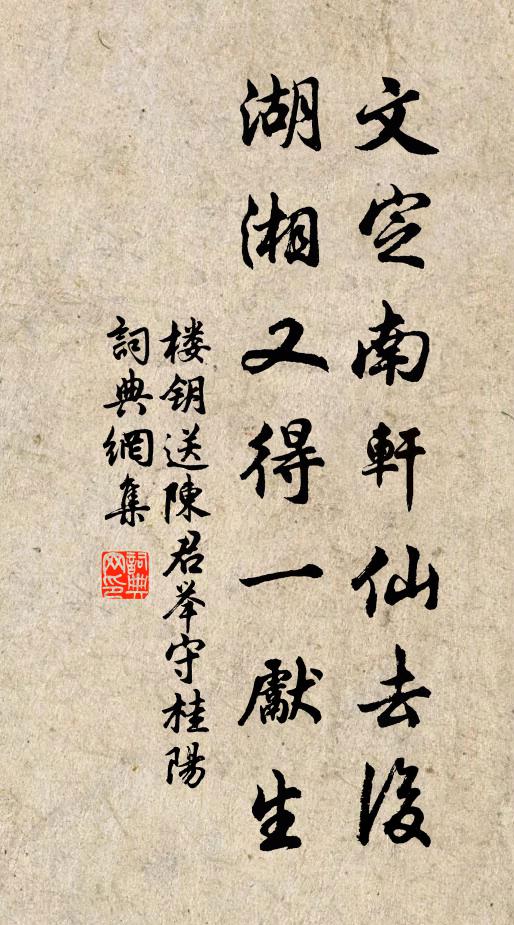 文定南軒仙去後
湖湘又得一獻生
楼钥送陳君举守桂陽
詞典網集
詞典
网印